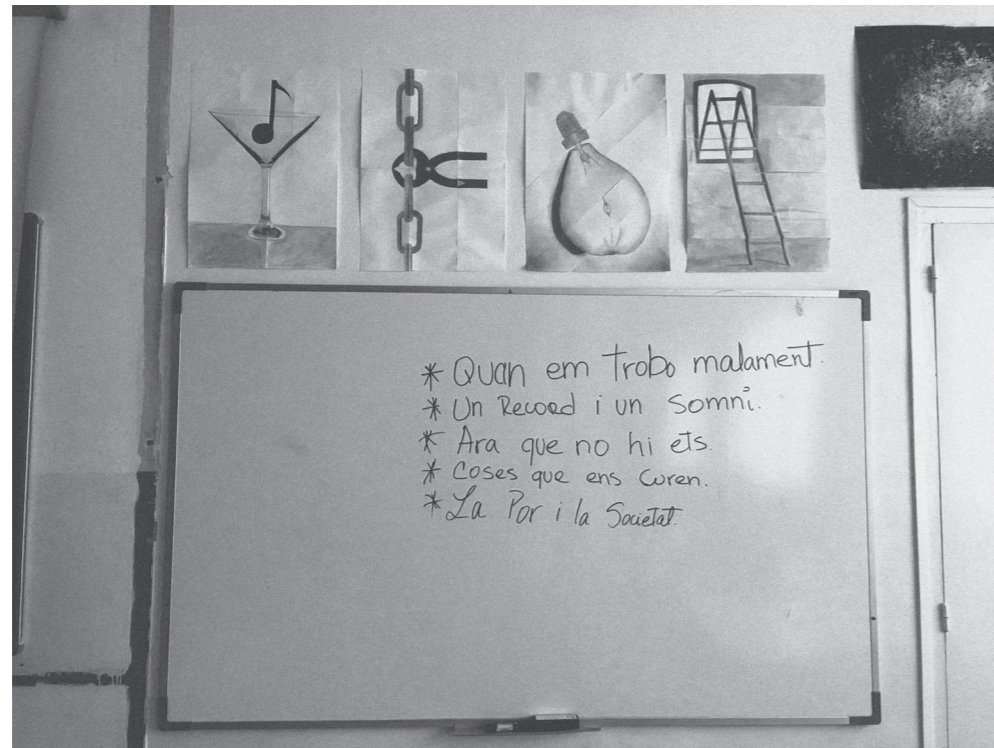 * Quan em trobo malament.
* Un Record i un somni.
* Ara que no hi ets.
* Coses que ens curen.
* La Por i la Societat.